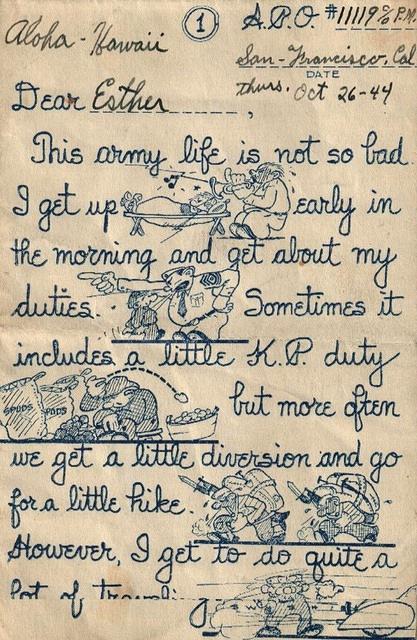 1
A.P.O. #11119 c/o P.M.
Aloha - Hawaii
San - Francisco, Cal
DATE
Thurs. Oct 26-44
Dear Esther,
This army life is not so bad.
I get up early in
the morning and get about my
duties. Sometimes it
includes a little K.P. duty
SPUDS SPUDS
but more often
we get a little diversion and go
for a little hike.
However, I get to do quite a
lot of traveling